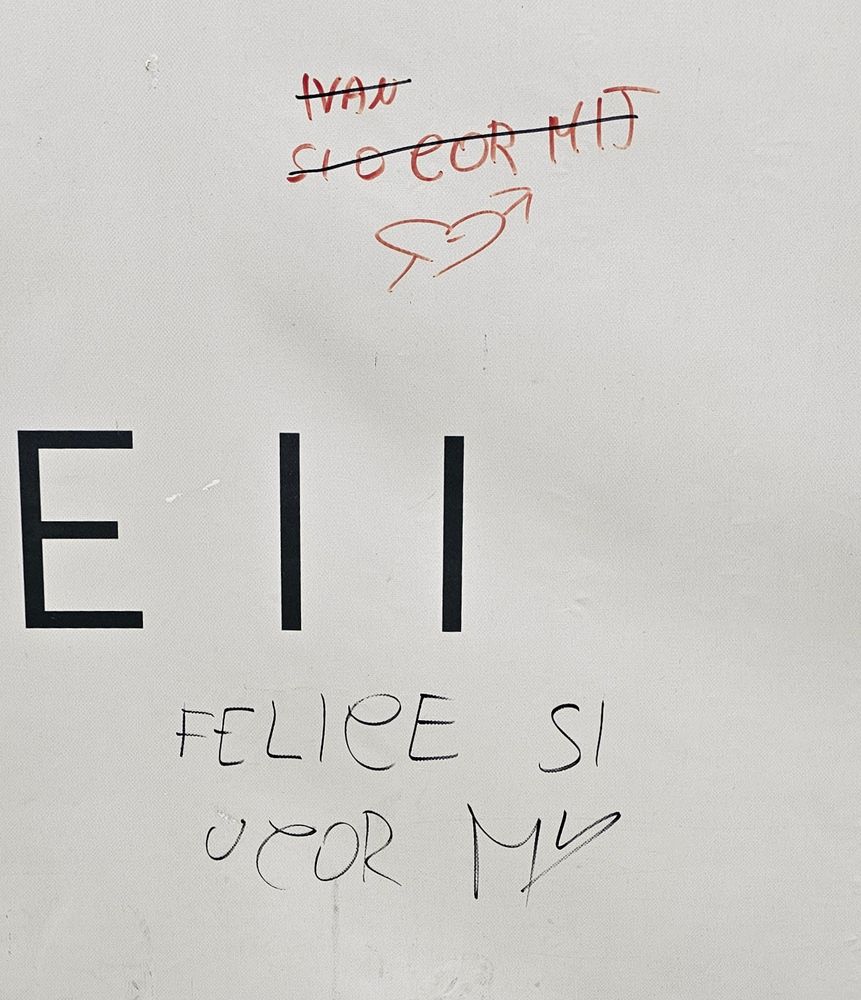 IVAN
SI O COR MIJ
EII
FELICE SI
O COR